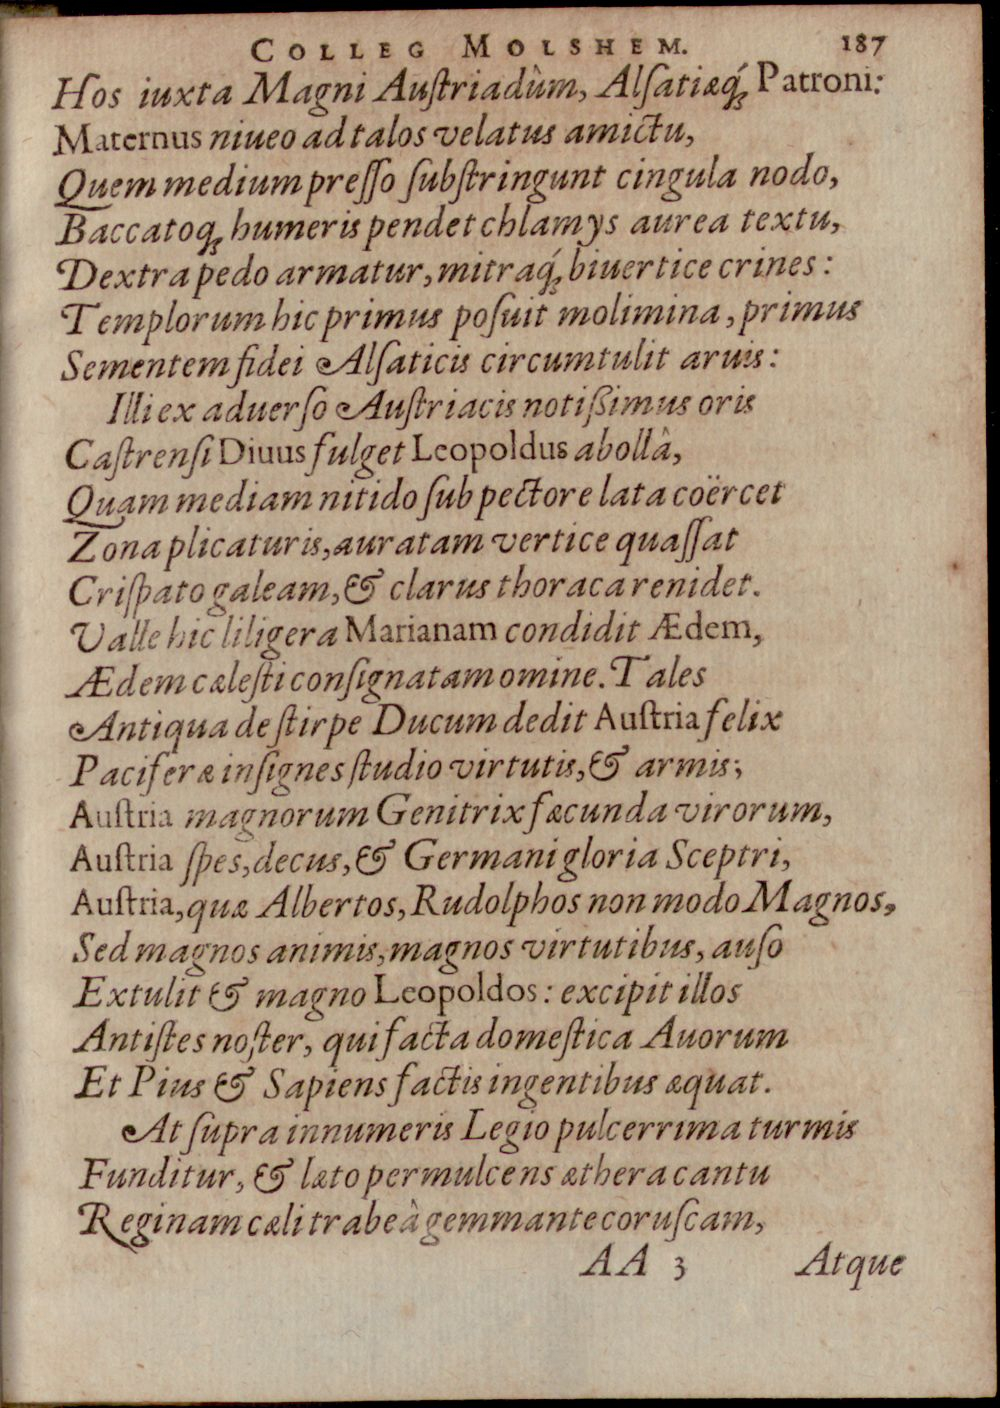 COLLEG MOLSHEM. 187
Hos iuxta Magni Auſtriadùm, Alſatiæq́; Patroni:
Maternus niueo ad talos velatus amictu,
Quem medium preſſo ſubſtringunt cingula nodo,
Baccatoq; humeris pendet chlamys aurea textu,
Dextra pedo armatur, mitraq́; biuertice crines:
Templorum hic primus poſuit molimina, primus
Sementem fidei Alſaticis circumtulit aruis:
Illi ex aduerſo Auſtriacis notißimus oris
Caſtrenſi Diuus fulget Leopoldus abollâ,
Quam mediam nitido ſub pectore lata coërcet
Zona plicaturis, auratam vertice quaſſat
Criſpato galeam, & clarus thoraca renidet.
Valle hic liligera Marianam condidit Ædem,
Ædem cæleſti conſignatam omine. Tales
Antiqua de ſtirpe Ducum dedit Auſtria felix
Paciferæ inſignes ſtudio virtutis, & armis;
Auſtria magnorum Genitrix fæcunda virorum,
Auſtria ſpes, decus, & Germani gloria Sceptri,
Auſtria, quæ Albertos, Rudolphos non modo Magnos,
Sed magnos animis, magnos virtutibus, auſo
Extulit & magno Leopoldos: excipit illos
Antiſtes noſter, qui facta domeſtica Auorum
Et Pius & Sapiens factis ingentibus æquat.
At ſupra innumeris Legio pulcerrima turmis
Funditur, & læto permulcens æthera cantu
Reginam cæli trabeâ gemmante coruſcam,
AA 3 Atque